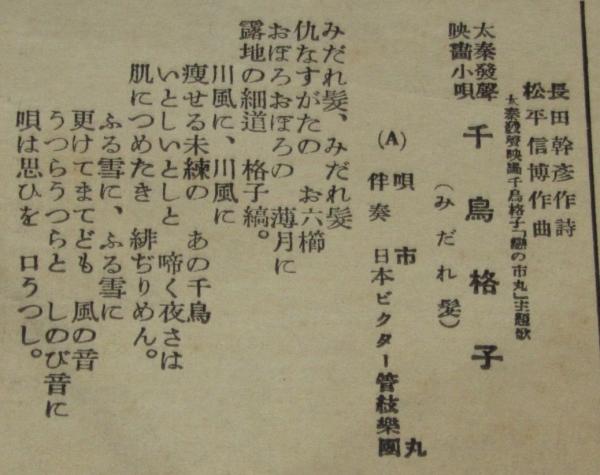 長田幹彥作詩
松平信博作曲
太秦發聲映畵千鳥格子「戀の市丸」主題歌
太秦發聲
映畵小唄
千鳥格子
(みだれ髮)
(A) 唄 市丸
伴奏 日本ビクター管絃樂團
みだれ髮、みだれ髮
仇なすがたの お六櫛
おぼろおぼろの 薄月に
露地の細道 格子縞。
川風に、川風に
瘦せる未練の あの千鳥
いとしいとしと 啼く夜さは
肌につめたき 緋ぢりめん。
ふる雪に、ふる雪に
更けてまてども 風の音
うつらうつらと しのび音に
唄は思ひを 口うつし。